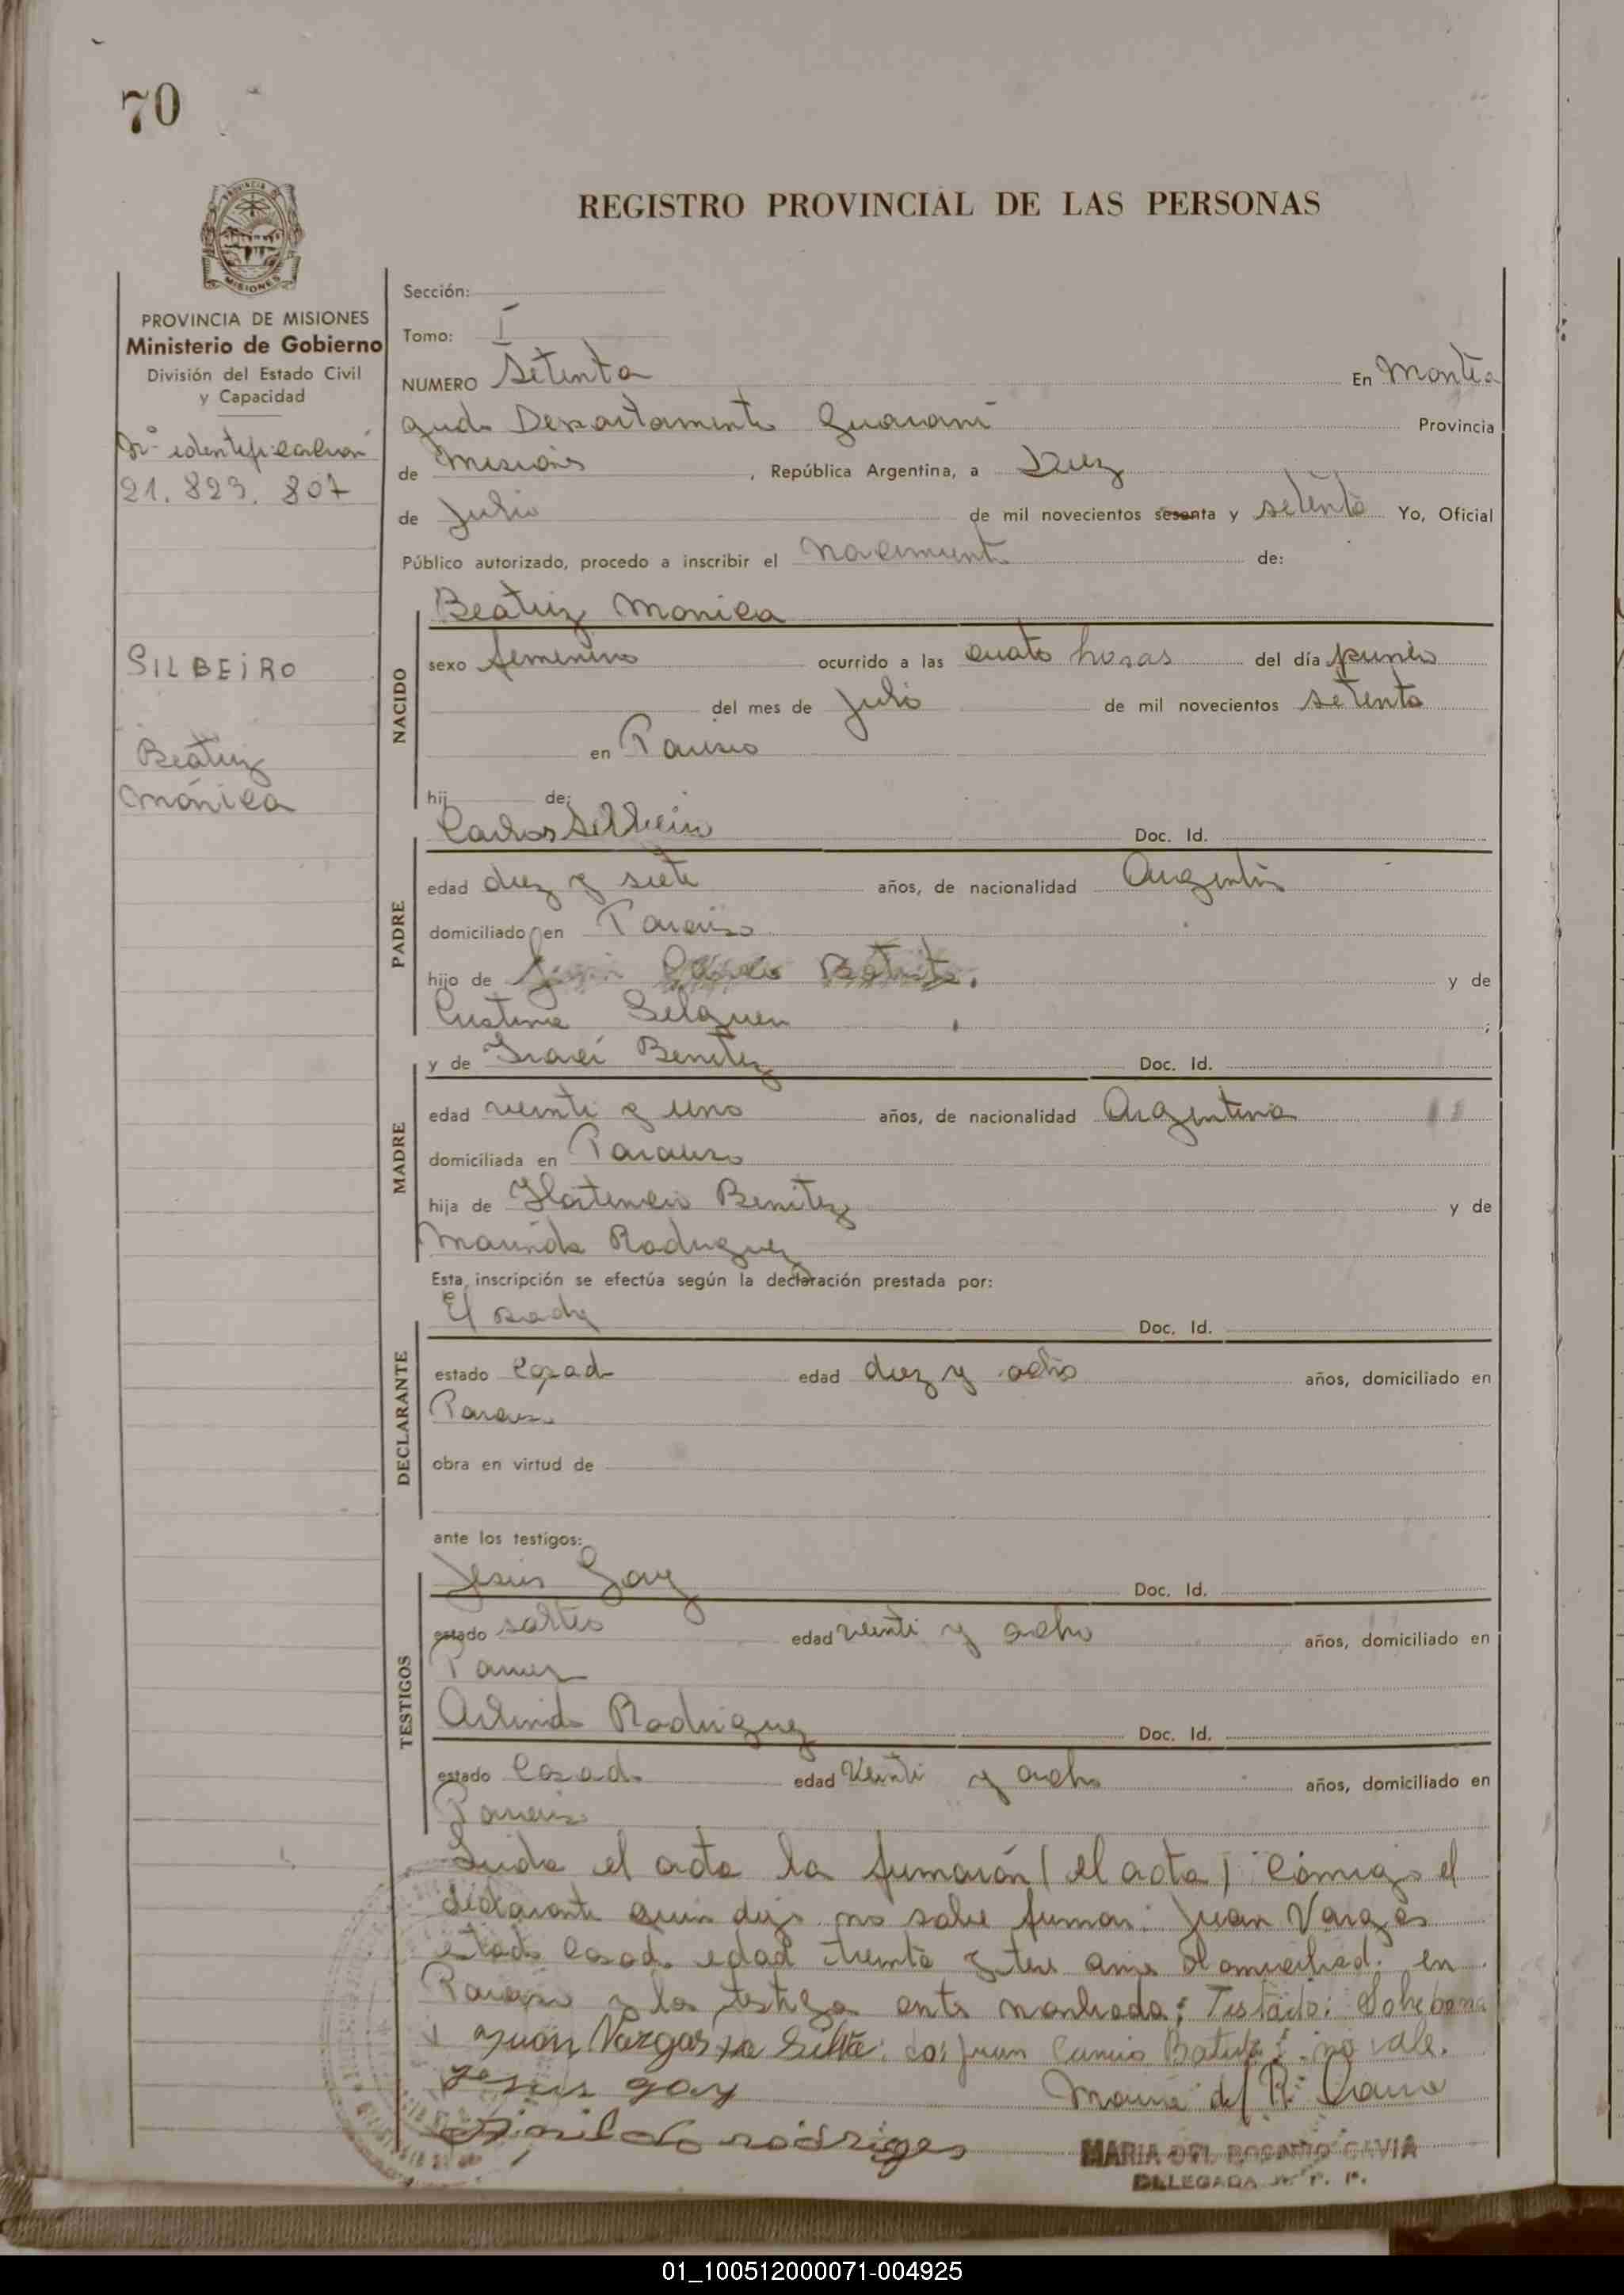 70
REGISTRO PROVINCIAL DE LAS PERSONAS
PROVINCIA DE MISIONES
Ministerio de Gobierno
División del Estado Civil
y Capacidad
Nº identificación
21.823.807
SILBEIRO
Beatriz
Mónica
Sección:
Tomo: I
NUMERO Setenta En Montea
gudo Departamento Guaraní Provincia
de Misiones, República Argentina, a Diez
de Julio de mil novecientos sesenta y setenta Yo, Oficial
Público autorizado, procedo a inscribir el nacimiento de:
NACIDO
Beatriz Monica
sexo femenino ocurrido a las cuatro horas del día primero
del mes de Julio de mil novecientos setenta
en Paraiso
hij de:
PADRE
Carlos Silbeiro Doc. Id.
edad diez y siete años, de nacionalidad Argentino
domiciliado en Paraiso
hijo de y de
Cristina ;
MADRE
y de Iraci Benitez Doc. Id.
edad veinti y uno años, de nacionalidad Argentina
domiciliada en Paraiso
hija de Hortencio Benitez y de
Maurida Rodriguez
Esta inscripción se efectúa según la declaración prestada por:
DECLARANTE
El padre Doc. Id.
estado casado edad diez y ocho años, domiciliado en
Paraiso
obra en virtud de
ante los testigos:
TESTIGOS
Jesus Gay Doc. Id.
estado soltero edad veinti y ocho años, domiciliado en
Paraiso
Arlindo Rodriguez Doc. Id.
estado Casado edad Veinti y ocho años, domiciliado en
Paraiso
Leida el acta la firmarón (el acta) cómigo el
declarante quien dijo no sabe firmar: Juan Vargas
estado casado edad treinta y tres años domiciliado en
Paraiso y los testigos antes nombrado; Testado:
Juan Vargas da Silva: do: Juan Batista: no vale.
Jesus gay
Maria del R.
rodrigues
MARIA DEL ROSARIO GAVIA
DELEGADA R. P. P.
01_100512000071-004925